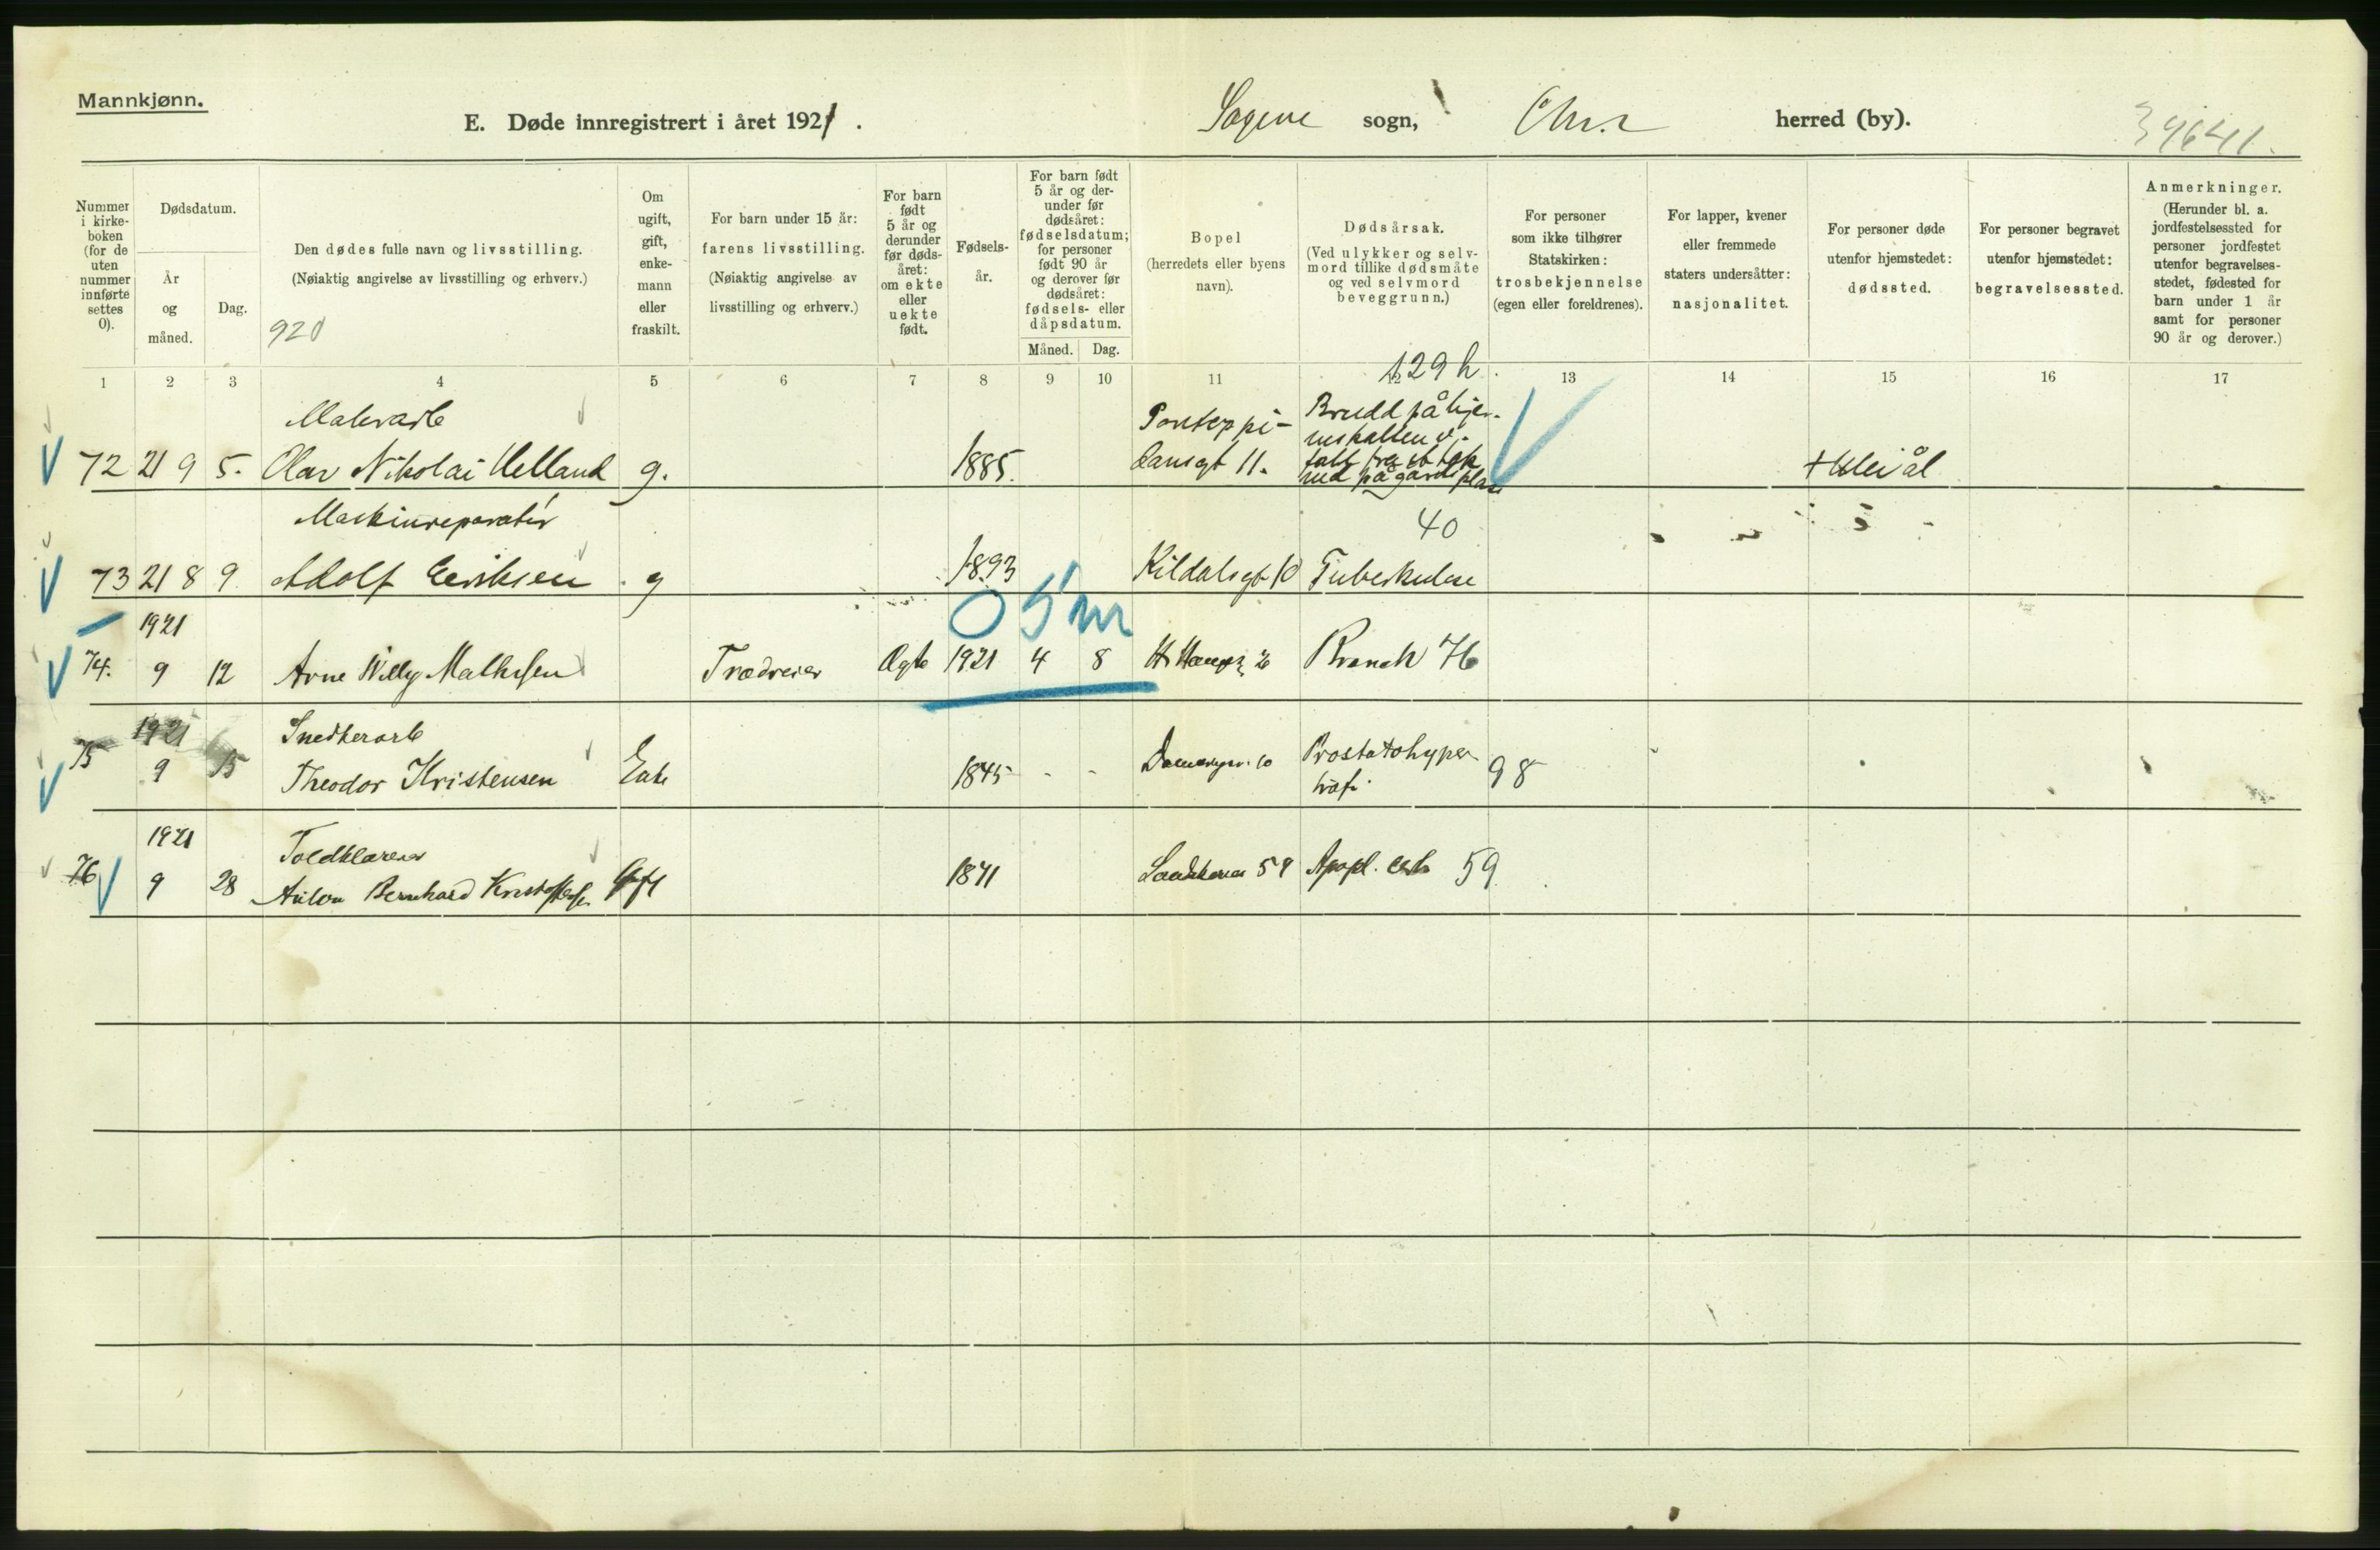 Mannkjønn.
E. Døde innregistrert i året 1921.
Sagene sogn, Chr.a herred (by).
39641.
Nummer i kirkeboken (for de uten nummer innførte settes 0).
Dødsdatum.
År og måned.
Dag.
Den dødes fulle navn og livsstilling.
(Nøiaktig angivelse av livsstilling og erhverv.)
920
Om ugift, gift, enkemann eller fraskilt.
For barn under 15 år:
farens livsstilling.
(Nøiaktig angivelse av livsstilling og erhverv.)
For barn født 5 år og derunder før dødsåret: om ekte eller uekte født.
Fødselsår.
For barn født 5 år og derunder før dødsåret: fødselsdatum; for personer født 90 år og derover før dødsåret: fødsels- eller dåpsdatum.
Måned. Dag.
Bopel
(herredets eller byens navn).
Dødsårsak.
(Ved ulykker og selvmord tillike dødsmåte og ved selvmord beveggrunn.)
For personer som ikke tilhører Statskirken:
trosbekjennelse
(egen eller foreldrenes).
For lapper, kvener eller fremmede staters undersåtter:
nasjonalitet.
For personer døde utenfor hjemstedet:
dødssted.
For personer begravet utenfor hjemstedet:
begravelsessted.
Anmerkninger.
(Herunder bl. a. jordfestelsessted for personer jordfestet utenfor begravelsesstedet, fødested for barn under 1 år samt for personer 90 år og derover.)
1 2 3 4 5 6 7 8 9 10 11 12 13 14 15 16 17
129 h
Malerarb
72 21 9 5. Olav Nikolai Helland g. 1885. Pontoppidansgt 11. Brudd på hjerneskallen v. fall fra et tak ned på gårdsplass
Maskinreparatør
73 21 8 9. Adolf Eriksen g 1893 Kildalsgt 10 Tuberkulose 40
0 5 m
1921
74. 9 12 Arne Willy Mathisen Trædreier Ægte 1921 4 8 Bronch 76
1921 Snedkerarb
75 9 15 Theodor Kristensen Enke 1845 - - Prostatahypertrofi 98
1921 Toldklarerer
76 9 28 Anton Bernhard Kristoffersen Gift 1841 59 Apopl. cereb 59